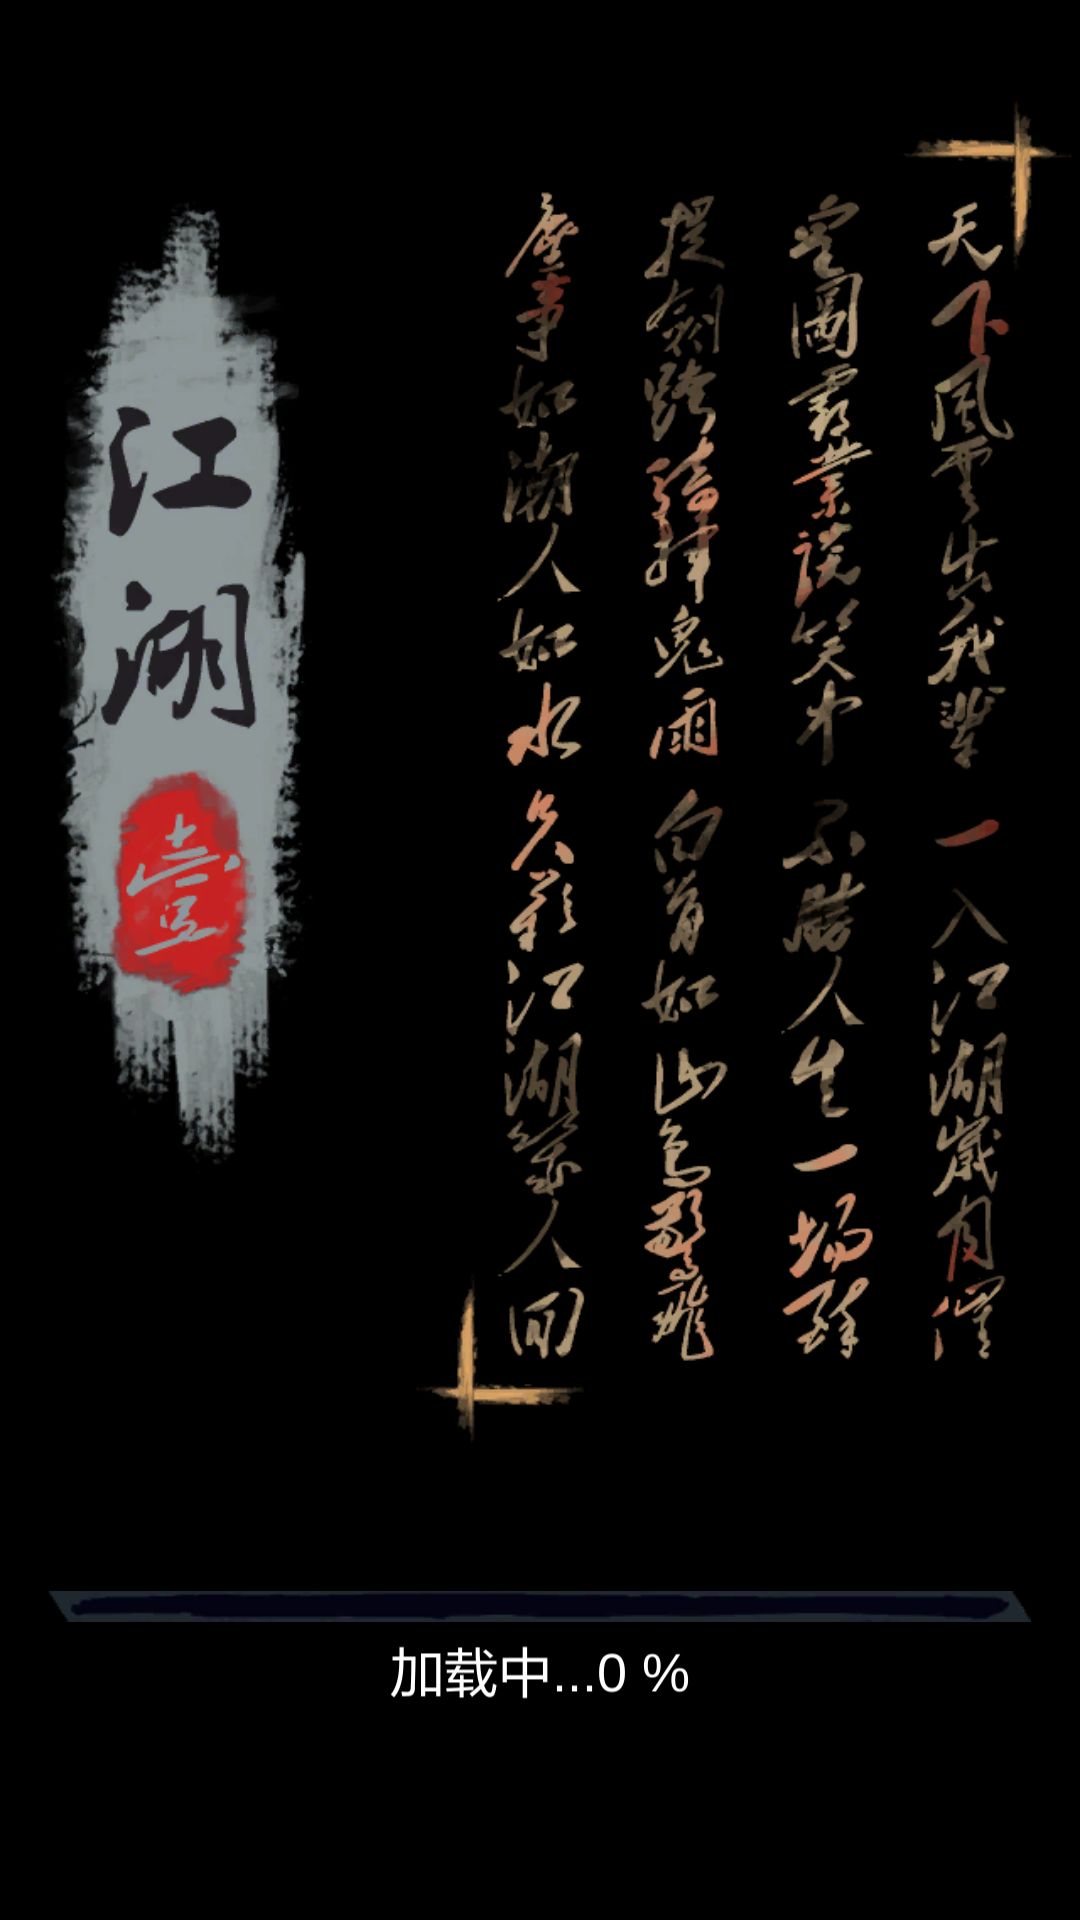 天下風雲出我輩 一入江湖歲月催
皇圖霸業談笑中 不勝人生一場醉
提劍跨騎揮鬼雨 白骨如山鳥驚飛
塵事如潮人如水 只嘆江湖幾人回
江湖
壹
加载中...0 %